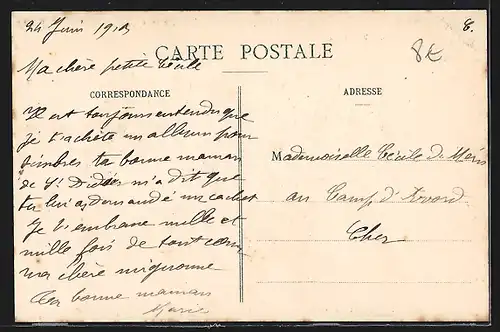 24 Juin 191
8€
CARTE POSTALE
Ma chère petite Cécile
CORRESPONDANCE
ADRESSE
Il est toujours entendu que
je t'achète un album pour
timbres ta bonne maman
de St Didier m'a dit que
tu lui as demandé un cachet
Je t'embrasse mille et
mille fois de tout cœur
ma chère mignonne
Ta bonne maman
Marie
Mademoiselle Cécile de
au Camp d'Avord
Cher